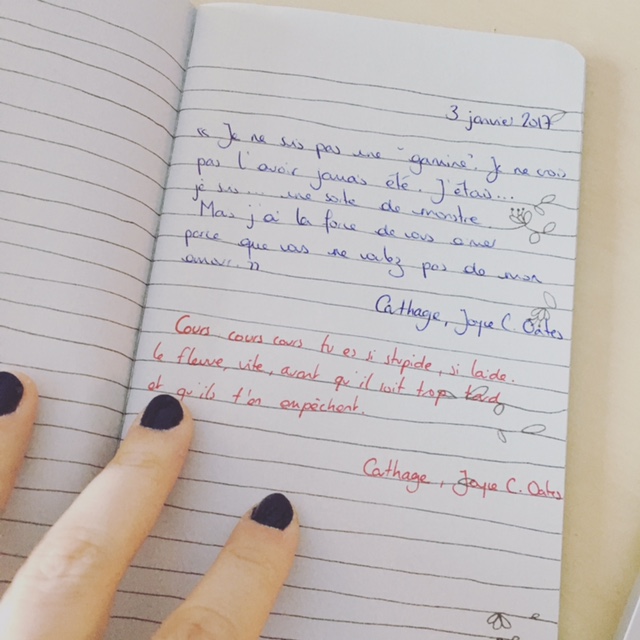 3 janvier 2017
« Je ne suis pas une "gamine". Je ne crois
pas l'avoir jamais été. J'étais...
je suis... une sorte de monstre.
Mais j'ai la force de vous aimer
parce que vous ne voulez pas de mon
amour. »
Cathage, Joyce C. Oates
Cours cours cours tu es si stupide, si laide.
le fleuve, vite, avant qu'il soit trop tard
et qu'ils t'en empêchent.
Cathage, Joyce C. Oates